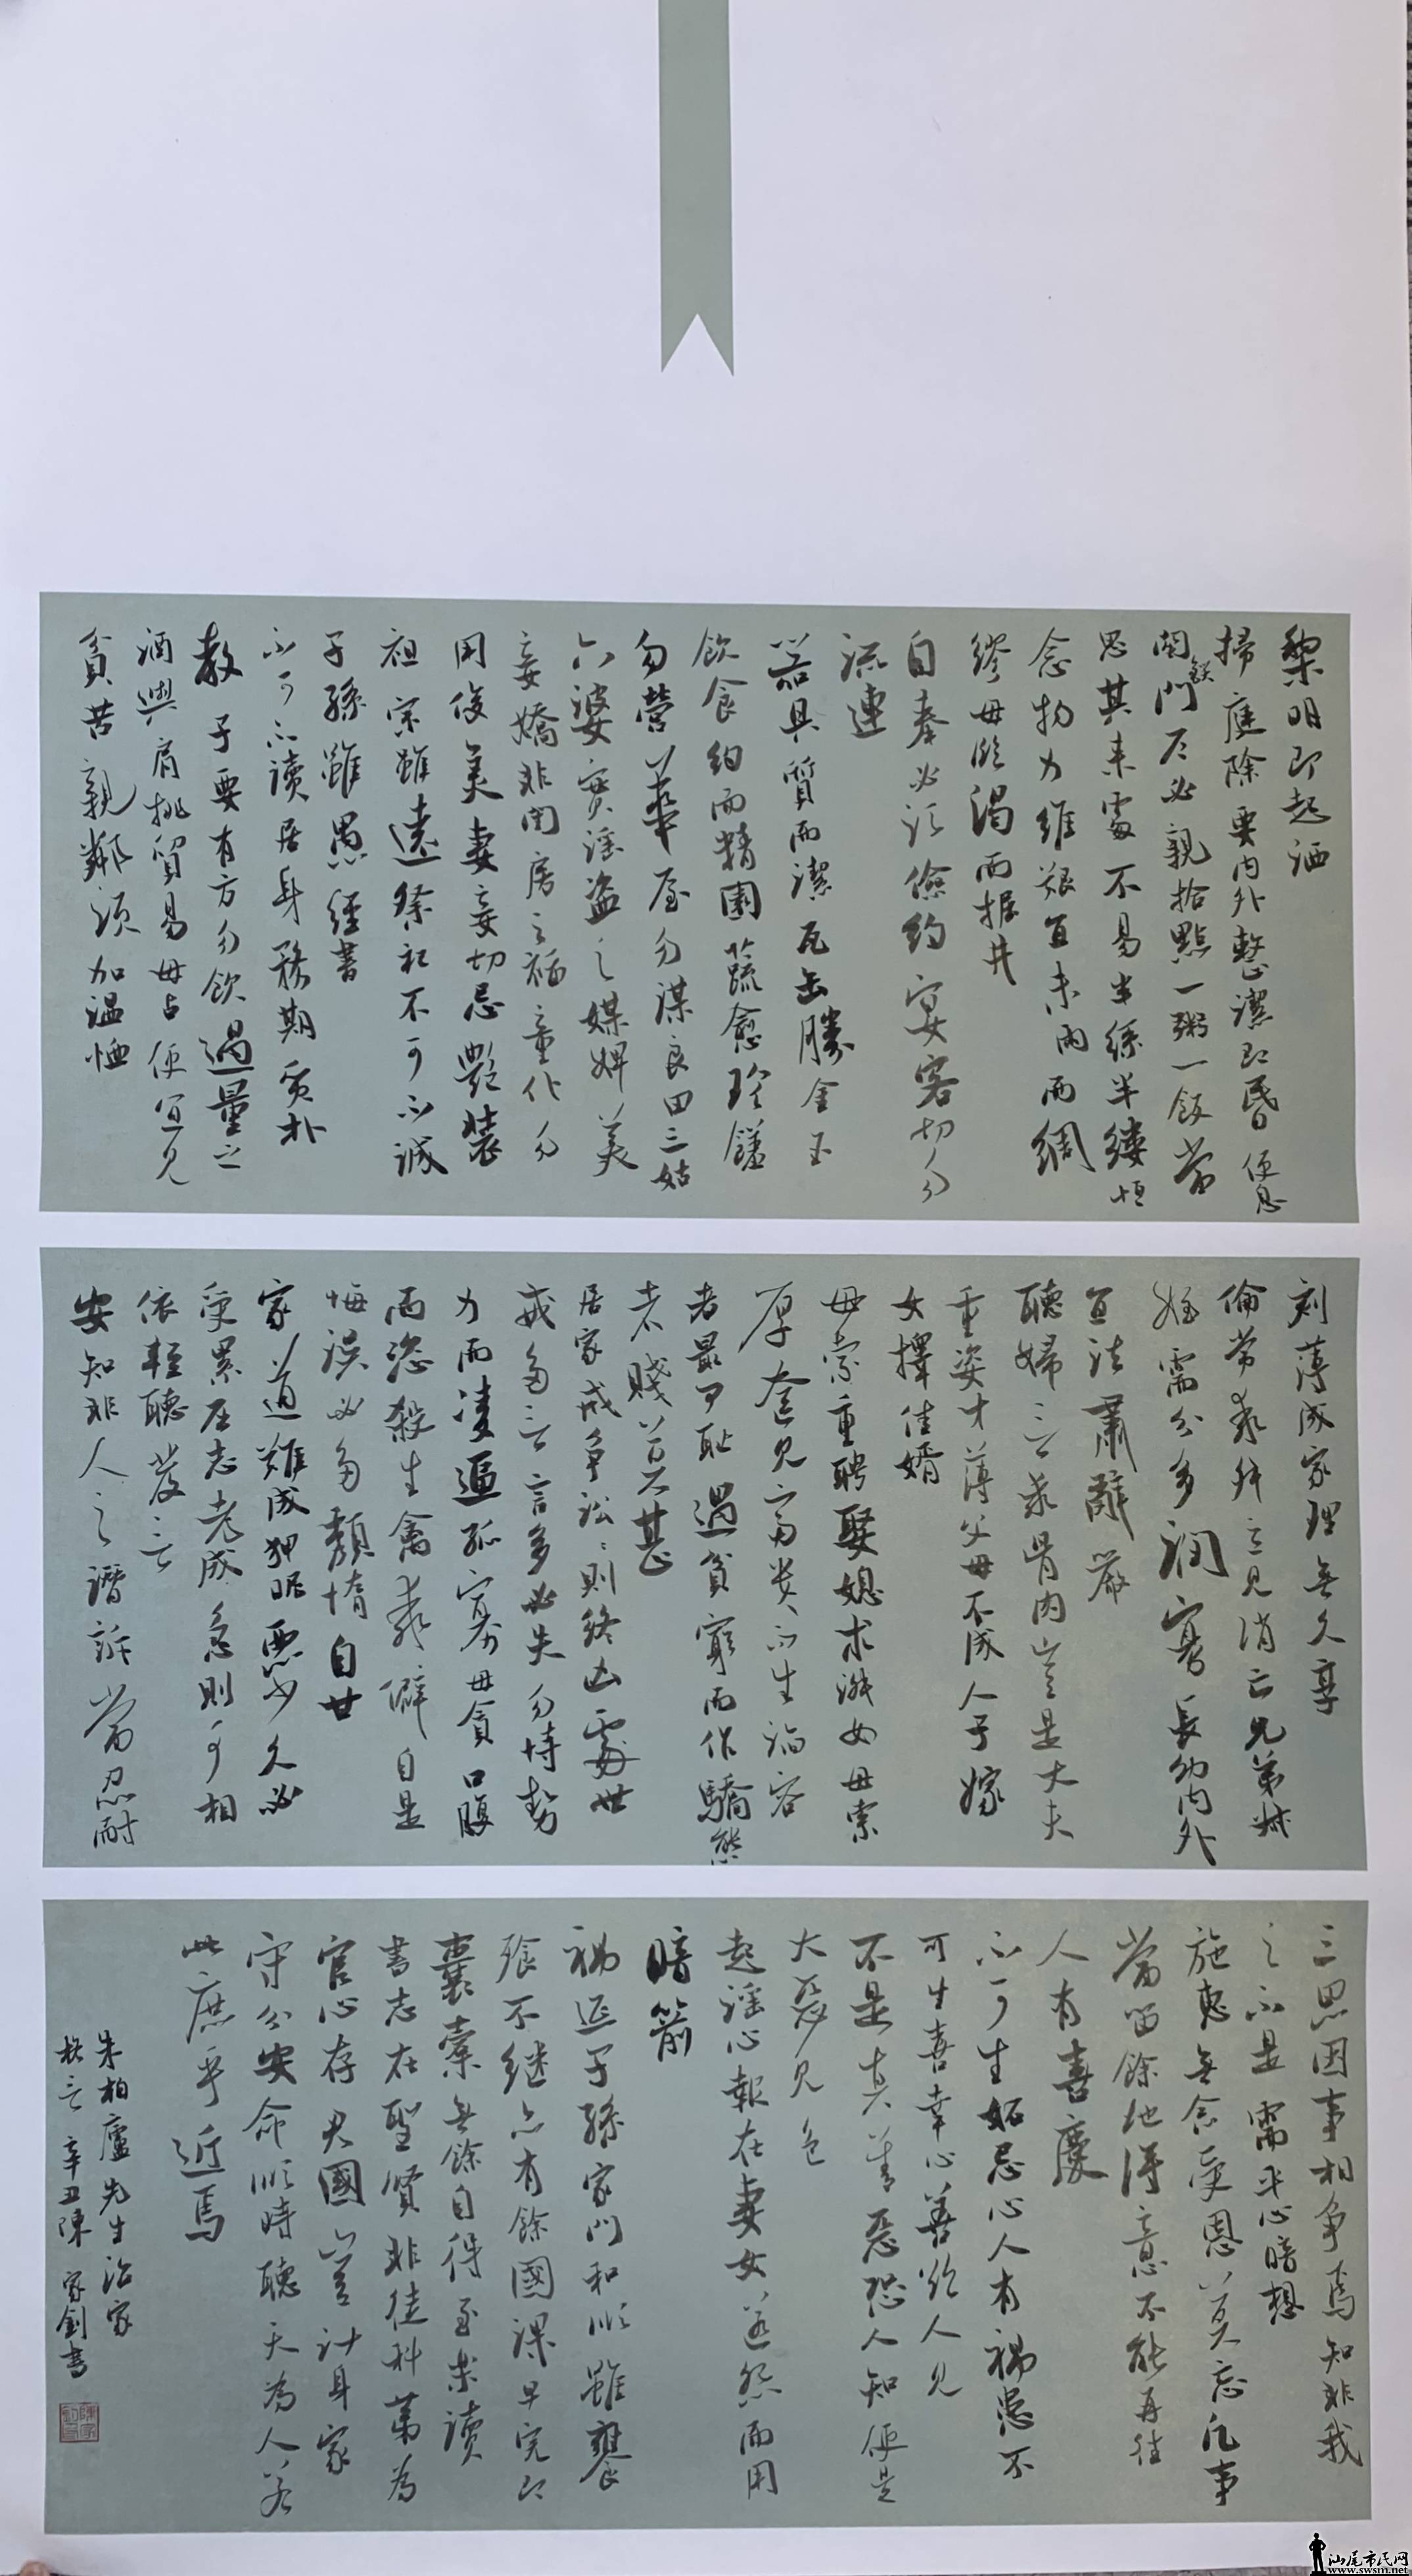 黎明即起洒
掃庭除要内外整潔即昏便息
関鎖門户必親拾點一粥一飯當
思其来處不易半絲半縷恒
念物力維艱宜未雨而綢
繆毋臨渴而掘井
自奉必須儉約宴客切勿
流連
器具質而潔瓦缶勝金玉
飲食約而精園蔬愈珍饈
勿營華屋勿謀良田三姑
六婆實淫盗之媒婢美
妾嬌非閨房之福童仆勿
用俊美妻妾切忌艷装
祖宗雖遠祭祀不可不誠
子孫雖愚經書
不可不讀居身務期質朴
教子要有方勿飲過量之
酒與肩挑貿易毋占便宜見
貧苦親鄰須加温恤
刻薄成家理無久享
倫常乖舛立見消亡兄弟叔
姪需分多潤寡長幼内外
宜法肅辭嚴
聽婦言乖骨肉豈是大夫
重姿才薄父母不成人子嫁
女擇佳婿
毋索重聘娶媳求淑女毋索
厚奩見富貴而生謟容
者最可耻過貧窮而作驕態
者賤莫甚
居家戒争訟訟則終凶處世
戒多言言多必失勿恃勢
力而凌逼孤寡毋貪口腹
而恣殺生禽乖僻自是
悔误必多頽惰自甘
家道難成狎昵惡少久必
受累屈志老成急則可相
依輕聽發言
安知非人之譖訴當忍耐
三思因事相争焉知非我
之不是需平心暗想
施惠無念受恩莫忘凡事
當留餘地得意不能再往
人有喜慶
不可生妬忌心人有禍患不
可生喜幸心善欲人見
不是真善惡恐人知便是
大惡見色
起淫心報在妻女匿怨而用
暗箭
禍延子孫家門和順雖饔
飧不继亦有餘國課早完即
囊橐無餘自得至樂讀
書志在聖賢非徒科第為
官心存君國豈计身家
守分安命順時聽天為人若
此庶乎近焉
朱柏廬先生治家
格言 辛丑陳家釗書
汕尾市民网
www.swsm.net